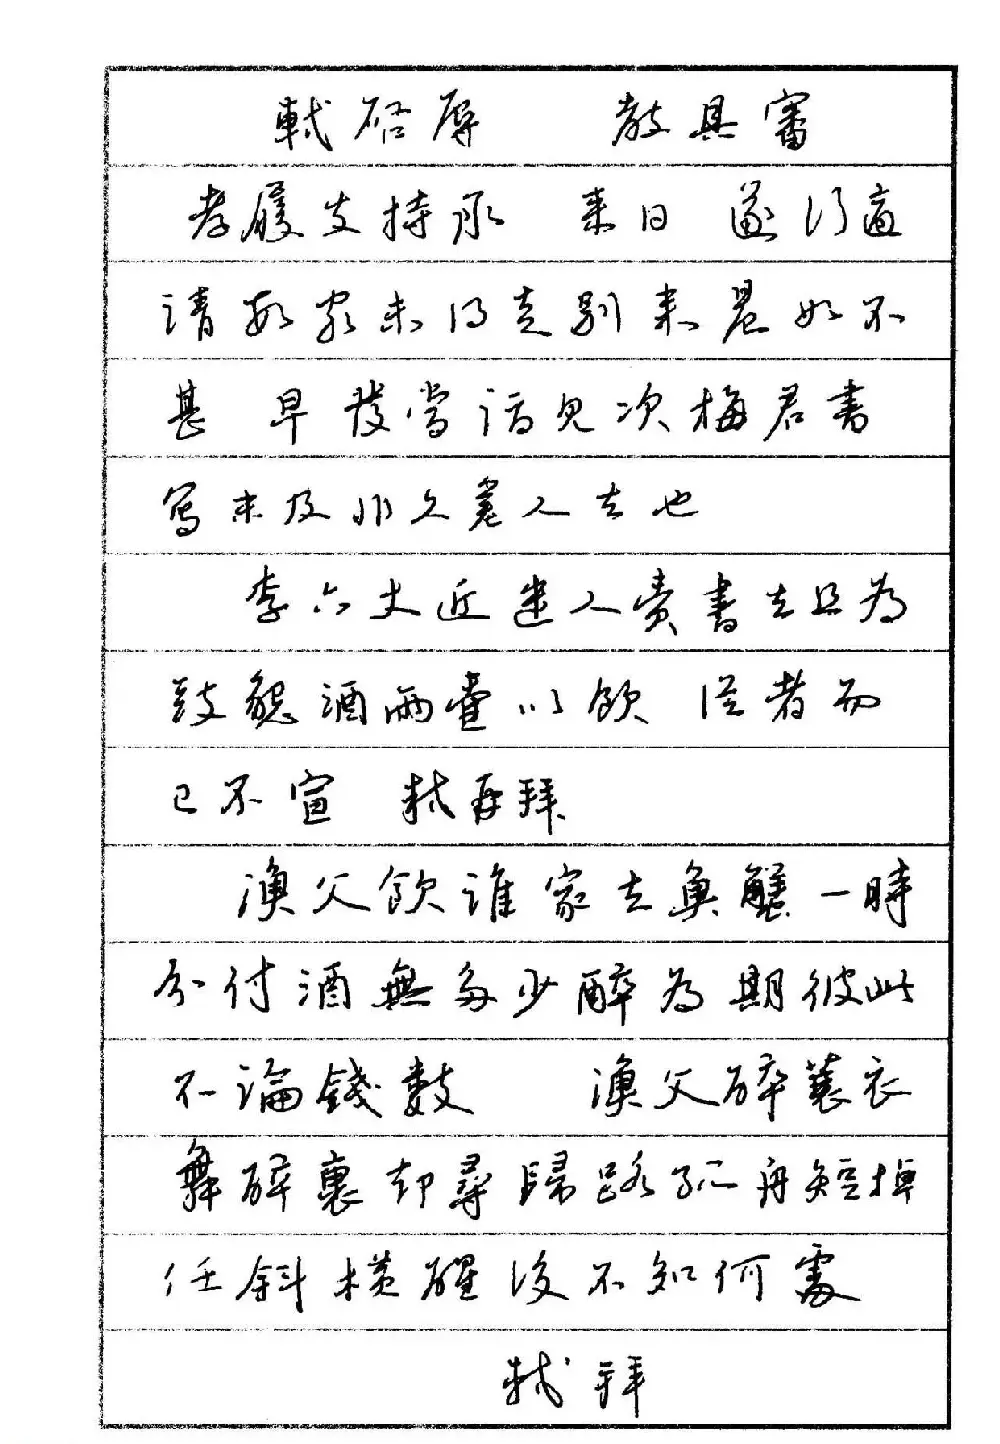 軾启辱 教具審
孝履支持承 来日 遂行適
请数客未得走别来晨如不
甚 早發當诣见次梅君書
寫未及非久差人去也
李六丈近遣人賫書去且為
致懇酒兩壺以飲 從者而
已不宣 軾再拜
漁父飲谁家去魚蟹一時
分付酒無多少醉為期彼此
不論錢數 漁父醉蓑衣
舞醉裏却尋歸路孤舟短棹
任斜横醒後不知何處
軾拜